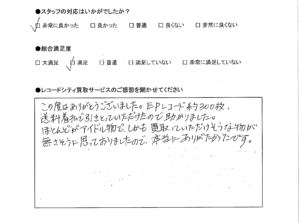 ●スタッフの対応はいかがでしたか?
☑非常に良かった □良かった □普通 □良くない □非常に良くない
●総合満足度
□大満足 ☑満足 □普通 □満足していない □非常に満足していない
●レコードシティ買取サービスのご感想を聞かせてください
この度はありがとうございました。EPレコード約300枚、
送料着払で引きとっていただけたので助かりました。
ほとんどがアイドル物で、しかも買取っていただけそうな物が
無さそうに思っておりましたので、本当にありがたかったです。